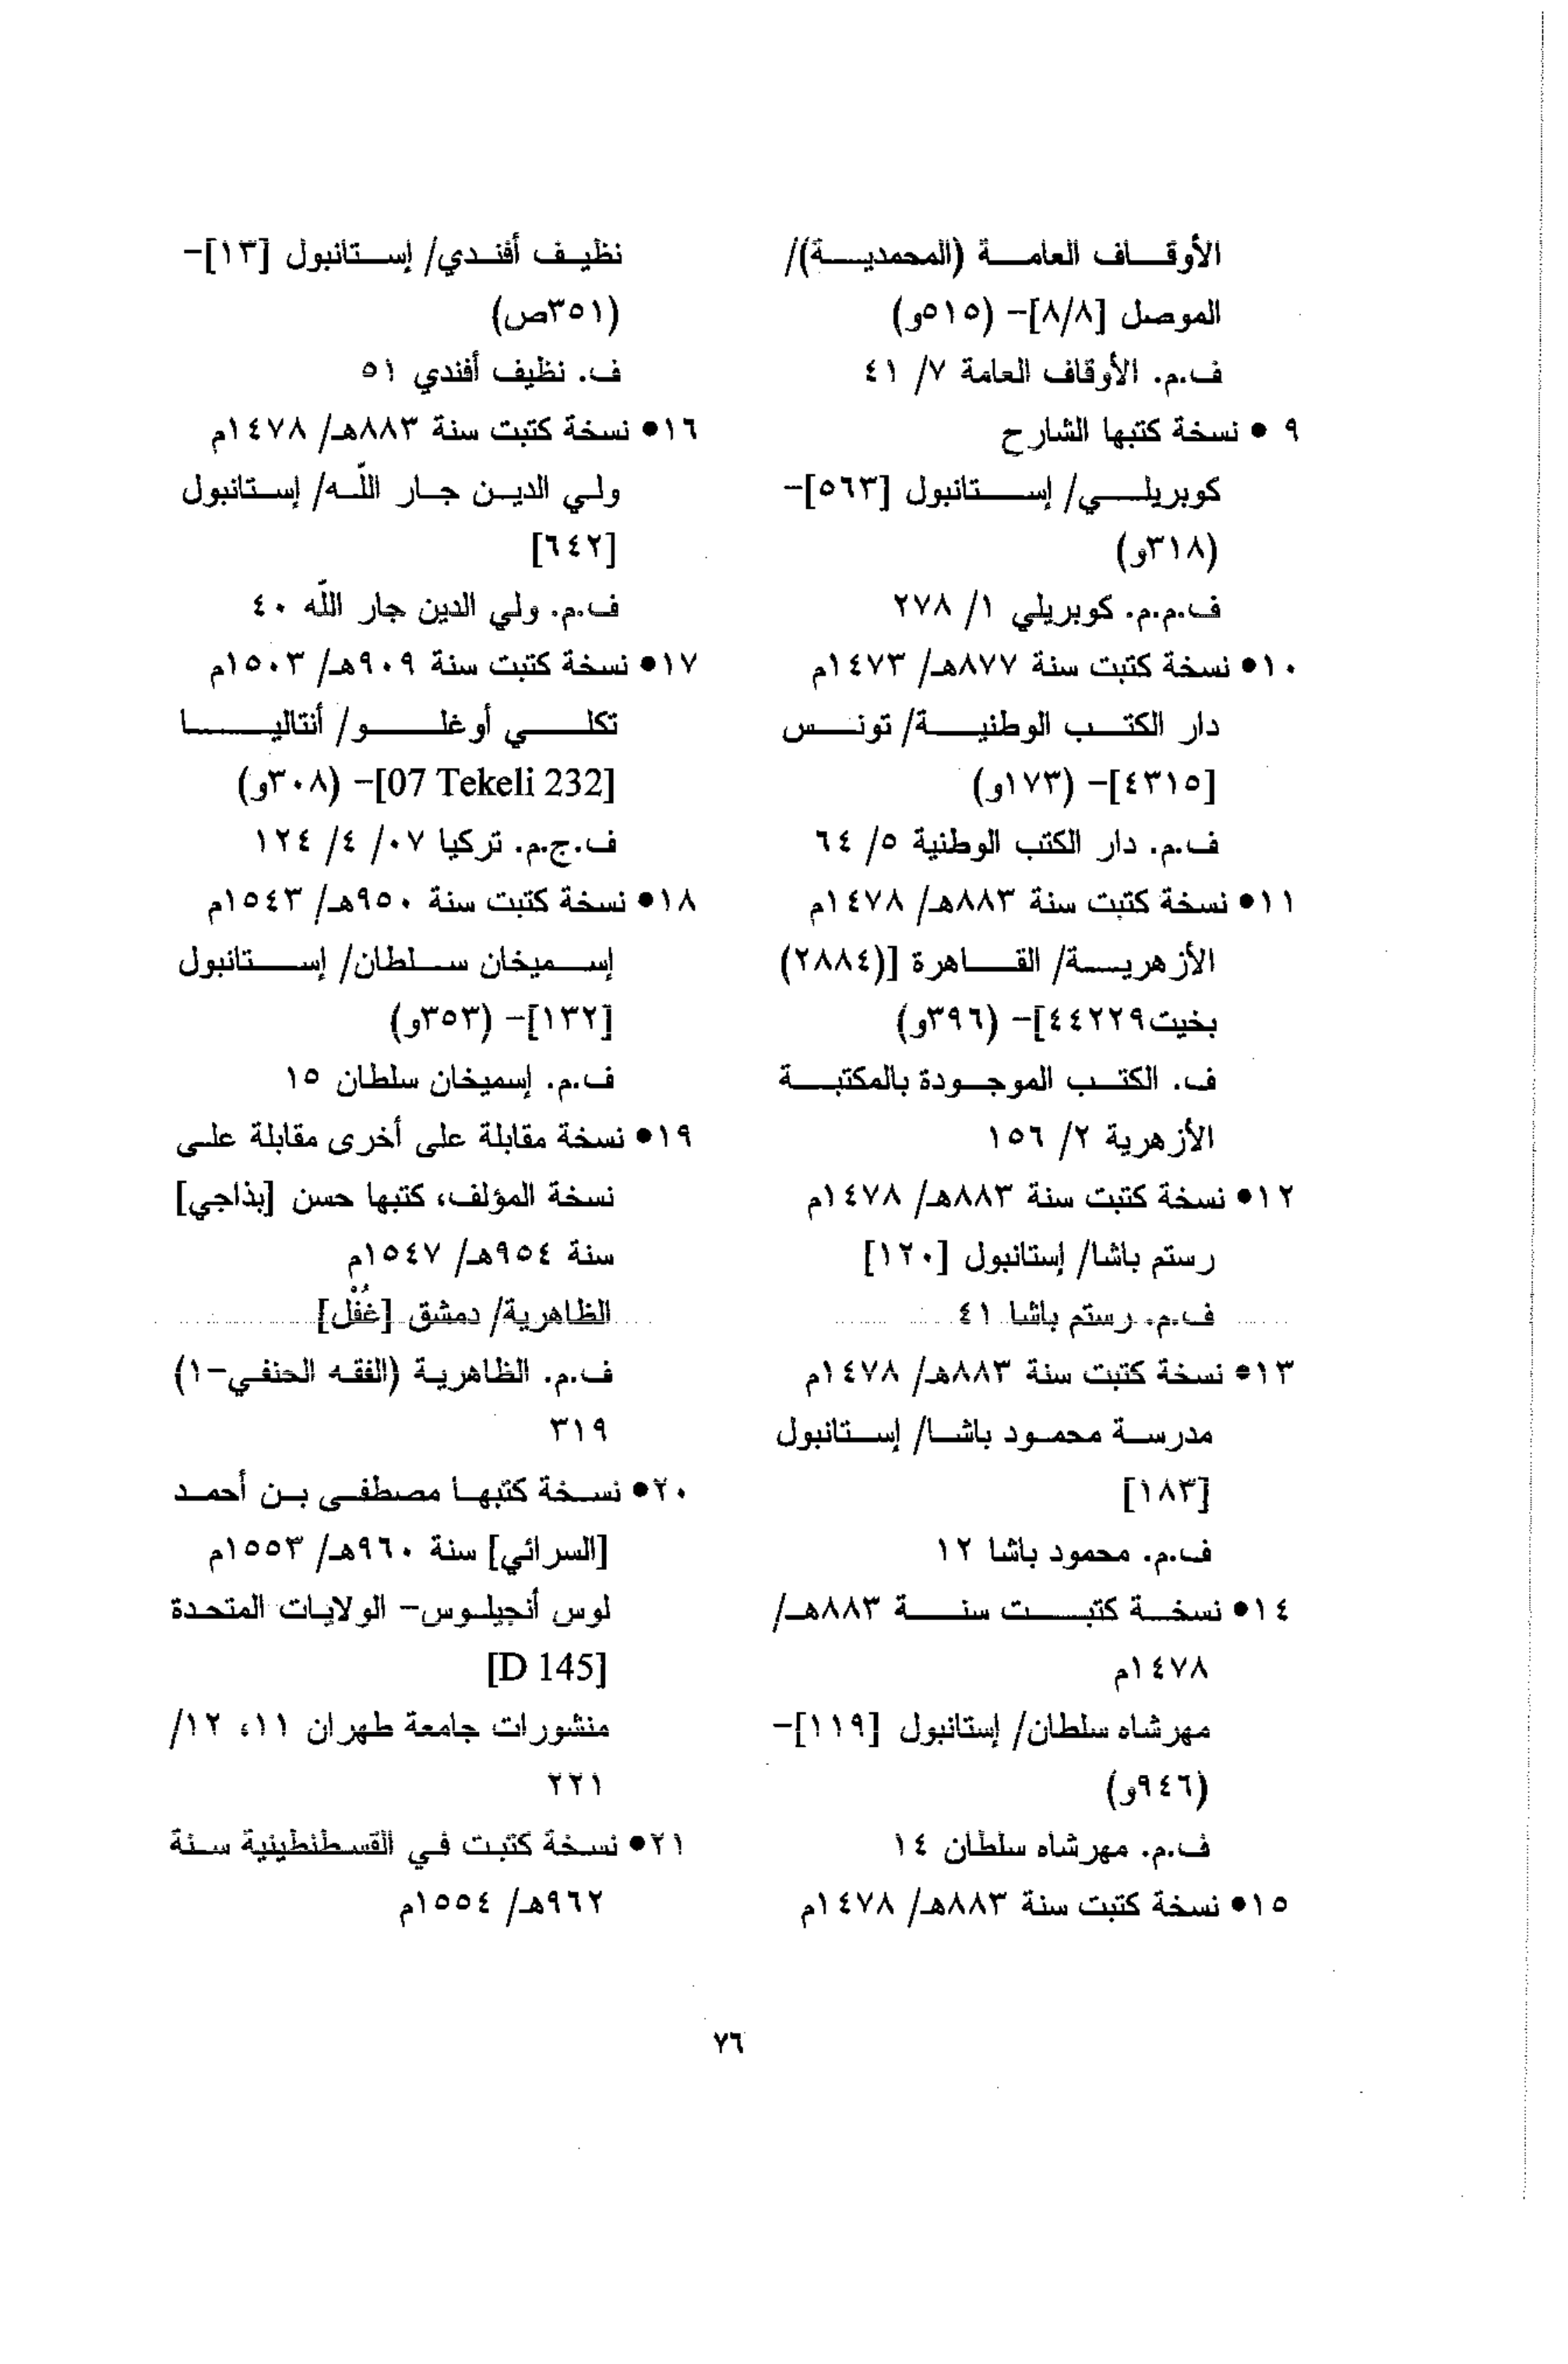 الأوقاف العامة (المحمدية)/
الموصل [٨/٨]- (٥١٥و)
ف.م. الأوقاف العامة ٧/ ٤١
٩ • نسخة كتبها الشارح
كوبريلي/ إستانبول [٥٦٣]-
(٣١٨و)
ف.م.م. كوبريلي ١/ ٢٧٨
١٠• نسخة كتبت سنة ٨٧٧هـ/ ١٤٧٣م
دار الكتب الوطنية/ تونس
[٤٣١٥]- (١٧٣و)
ف.م. دار الكتب الوطنية ٥/ ٦٤
١١• نسخة كتبت سنة ٨٨٣هـ/ ١٤٧٨م
الأزهرية/ القاهرة [(٢٨٨٤)
بخيت٤٤٢٢٩]- (٣٩٦و)
ف. الكتب الموجودة بالمكتبة
الأزهرية ٢/ ١٥٦
١٢• نسخة كتبت سنة ٨٨٣هـ/ ١٤٧٨م
رستم باشا/ إستانبول [١٢٠]
ف.م. رستم باشا ٤١
١٣• نسخة كتبت سنة ٨٨٣هـ/ ١٤٧٨م
مدرسة محمود باشا/ إستانبول
[١٨٣]
ف.م. محمود باشا ١٢
١٤• نسخة كتبت سنة ٨٨٣هـ/
١٤٧٨م
مهرشاه سلطان/ إستانبول [١١٩]-
(٩٤٦و)
ف.م. مهرشاه سلطان ١٤
١٥• نسخة كتبت سنة ٨٨٣هـ/ ١٤٧٨م
نظيف أفندي/ إستانبول [١٣]-
(٣٥١ص)
ف. نظيف أفندي ٥١
١٦• نسخة كتبت سنة ٨٨٣هـ/ ١٤٧٨م
ولي الدين جار اللّه/ إستانبول
[٦٤٢]
ف.م. ولي الدين جار اللّه ٤٠
١٧• نسخة كتبت سنة ٩٠٩هـ/ ١٥٠٣م
تكلي أوغلو/ أنتاليا
[07 Tekeli 232]- (٣٠٨و)
ف.ج.م. تركيا ٠٧/ ٤/ ١٢٤
١٨• نسخة كتبت سنة ٩٥٠هـ/ ١٥٤٣م
إسميخان سلطان/ إستانبول
[١٣٢]- (٣٥٣و)
ف.م. إسميخان سلطان ١٥
١٩• نسخة مقابلة على أخرى مقابلة على
نسخة المؤلف، كتبها حسن [بذاجي]
سنة ٩٥٤هـ/ ١٥٤٧م
الظاهرية/ دمشق [غُفْل]
ف.م. الظاهرية (الفقه الحنفي-١)
٣١٩
٢٠• نسخة كتبها مصطفى بن أحمد
[السرائي] سنة ٩٦٠هـ/ ١٥٥٣م
لوس أنجيلوس- الولايات المتحدة
[D 145]
منشورات جامعة طهران ١١، ١٢/
٢٢١
٢١• نسخة كتبت في القسطنطينية سنة
٩٦٢هـ/ ١٥٥٤م
٧٦